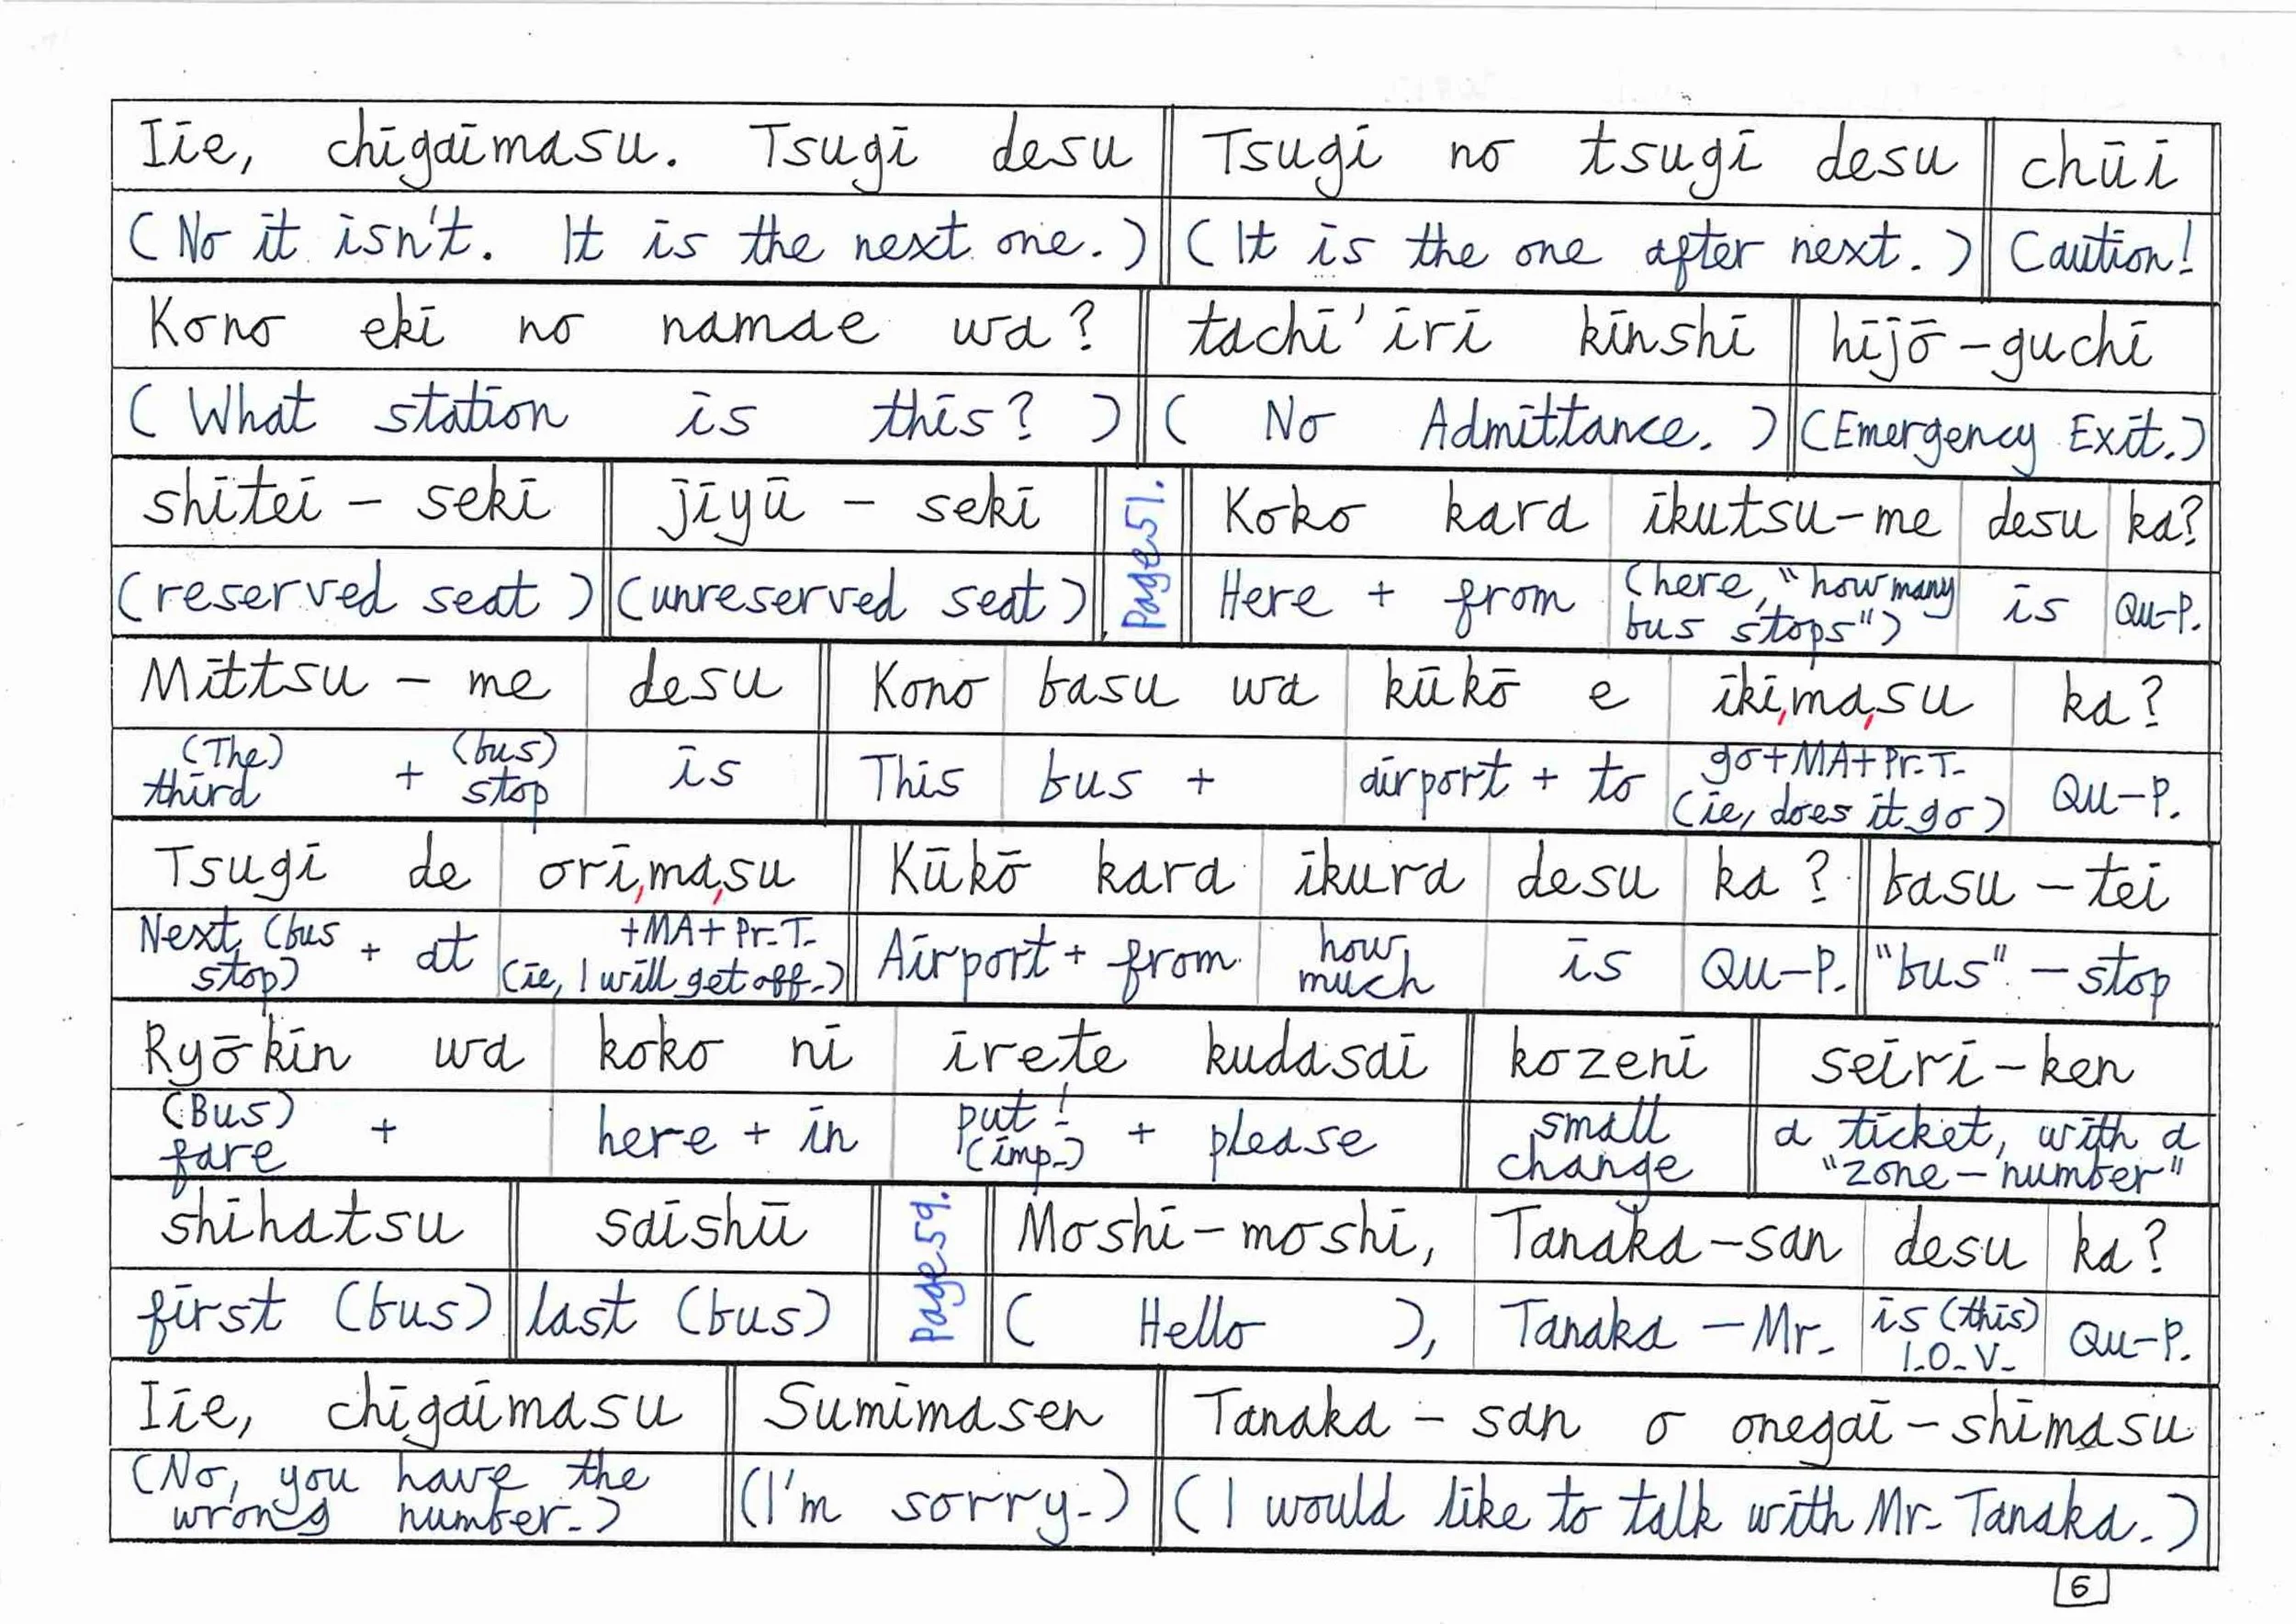 Iie, chigaimasu. Tsugi desu Tsugi no tsugi desu chūi
(No it isn't. It is the next one.) (It is the one after next.) Caution!
Kono eki no namae wa? tachi'iri kinshi hijō-guchi
(What station is this?) (No Admittance.) (Emergency Exit.)
shitei-seki jiyū-seki Page 51. Koko kara ikutsu-me desu ka?
(reserved seat) (unreserved seat) Here + from (here, "how many bus stops") is Qu-P.
Mittsu-me desu Kono basu wa kūkō e iki,ma,su ka?
(The) third + (bus) stop is This bus + airport + to go+MA+Pr.T. (ie, does it go) Qu-P.
Tsugi de ori,ma,su Kūkō kara ikura desu ka? basu-tei
Next (bus stop) + at +MA+Pr.T. (ie, I will get off.) Airport + from how much is Qu-P. "bus"-stop
Ryōkin wa koko ni irete kudasai kozeni seiri-ken
(Bus) fare + here + in put! (imp.) + please small change a ticket, with a "zone-number"
shihatsu saishū Page 59. Moshi-moshi, Tanaka-san desu ka?
first (bus) last (bus) (Hello), Tanaka-Mr. is (this) I.O.V. Qu-P.
Iie, chigaimasu Sumimasen Tanaka-san o onegai-shimasu
(No, you have the wrong number.) (I'm sorry.) (I would like to talk with Mr. Tanaka.)
6